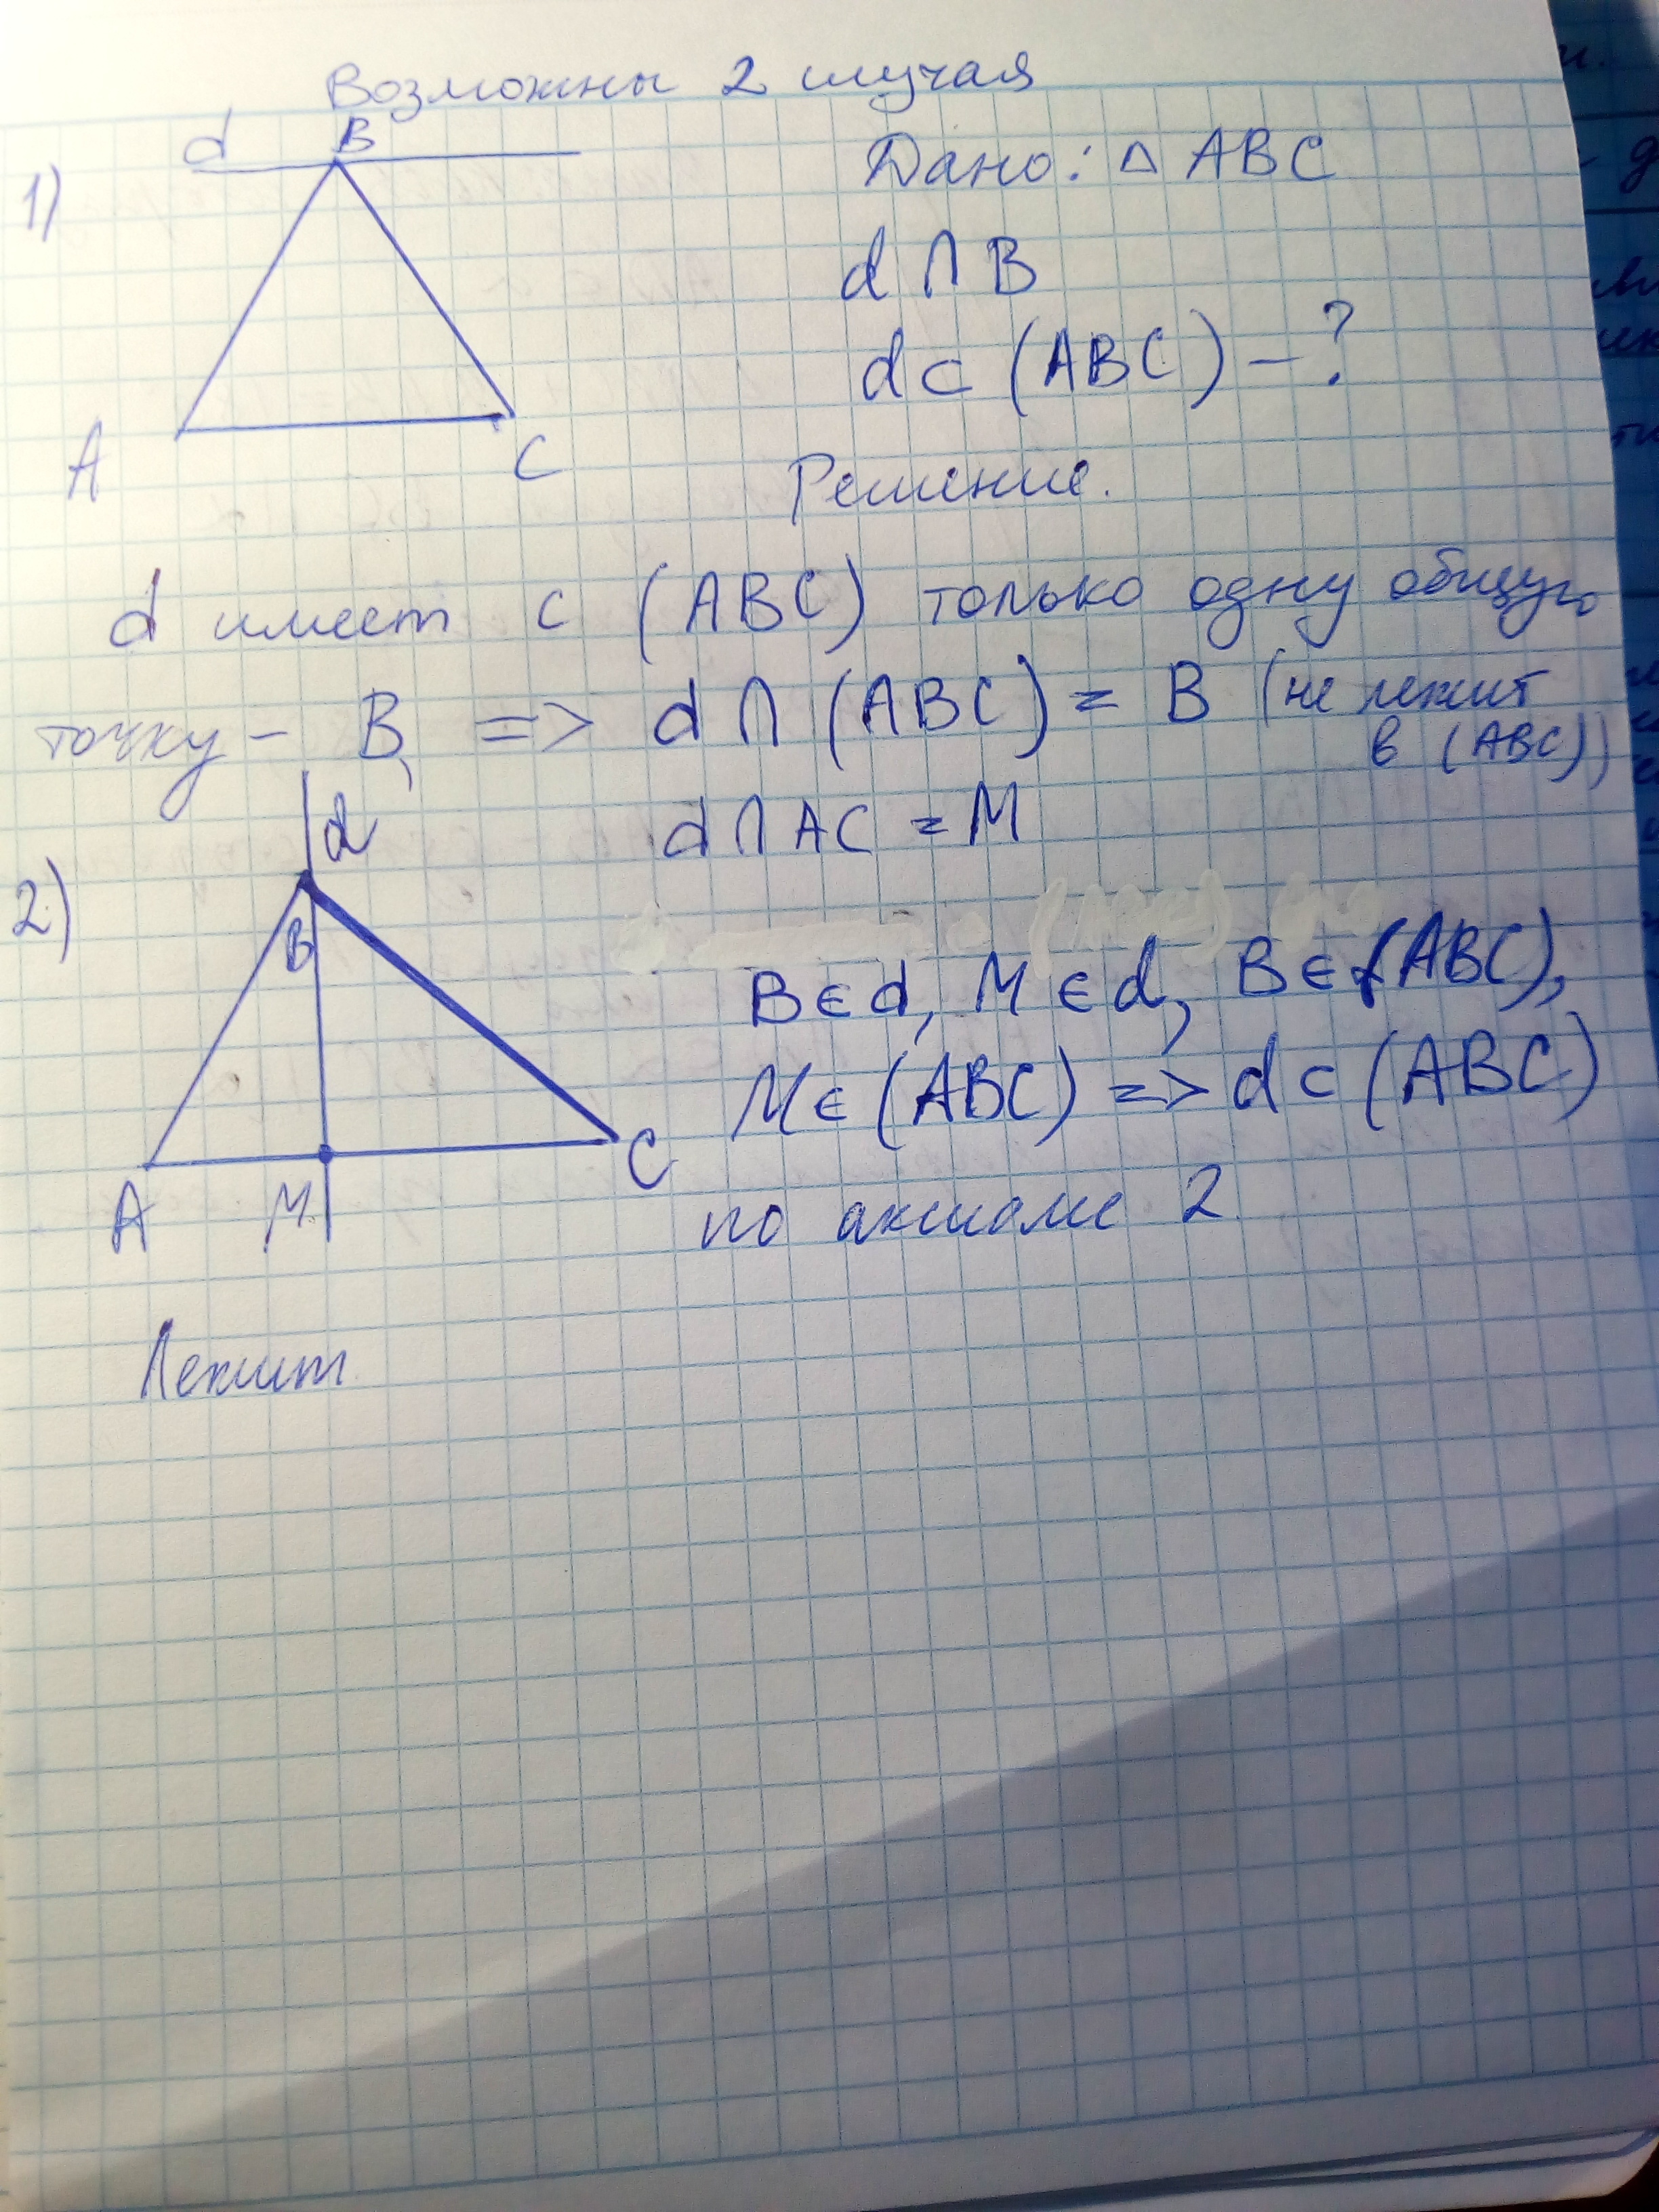 Возможны 2 случая
1)
d B
A C
Дано: △ ABC
d ∩ B
d ⊂ (ABC) – ?
Решение.
d имеет с (ABC) только одну общую
точку – B, => d ∩ (ABC) = B (не лежит
в (ABC))
2)
d
B
A M C
d ∩ AC = M
B ∈ d, M ∈ d, B ∈ (ABC),
M ∈ (ABC) => d ⊂ (ABC)
по аксиоме 2
Лежит